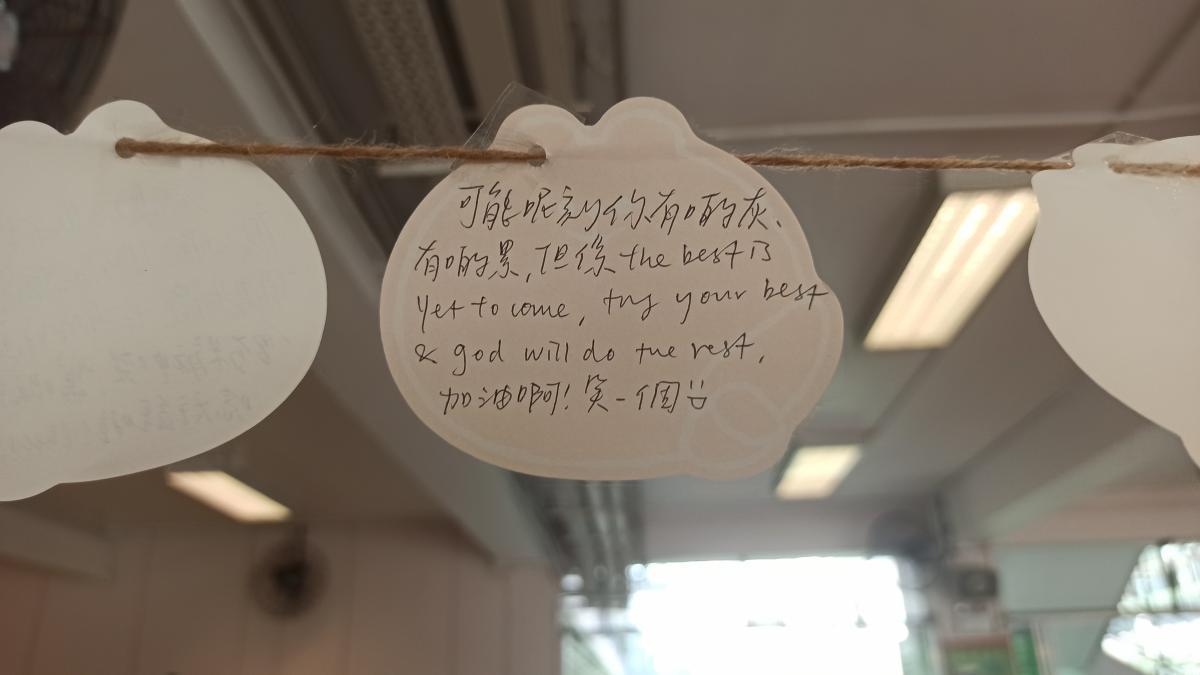 可能呢刻你有啲灰、
有啲累,但係 the best is
yet to come, try your best
& god will do the rest.
加油啊! 笑一個